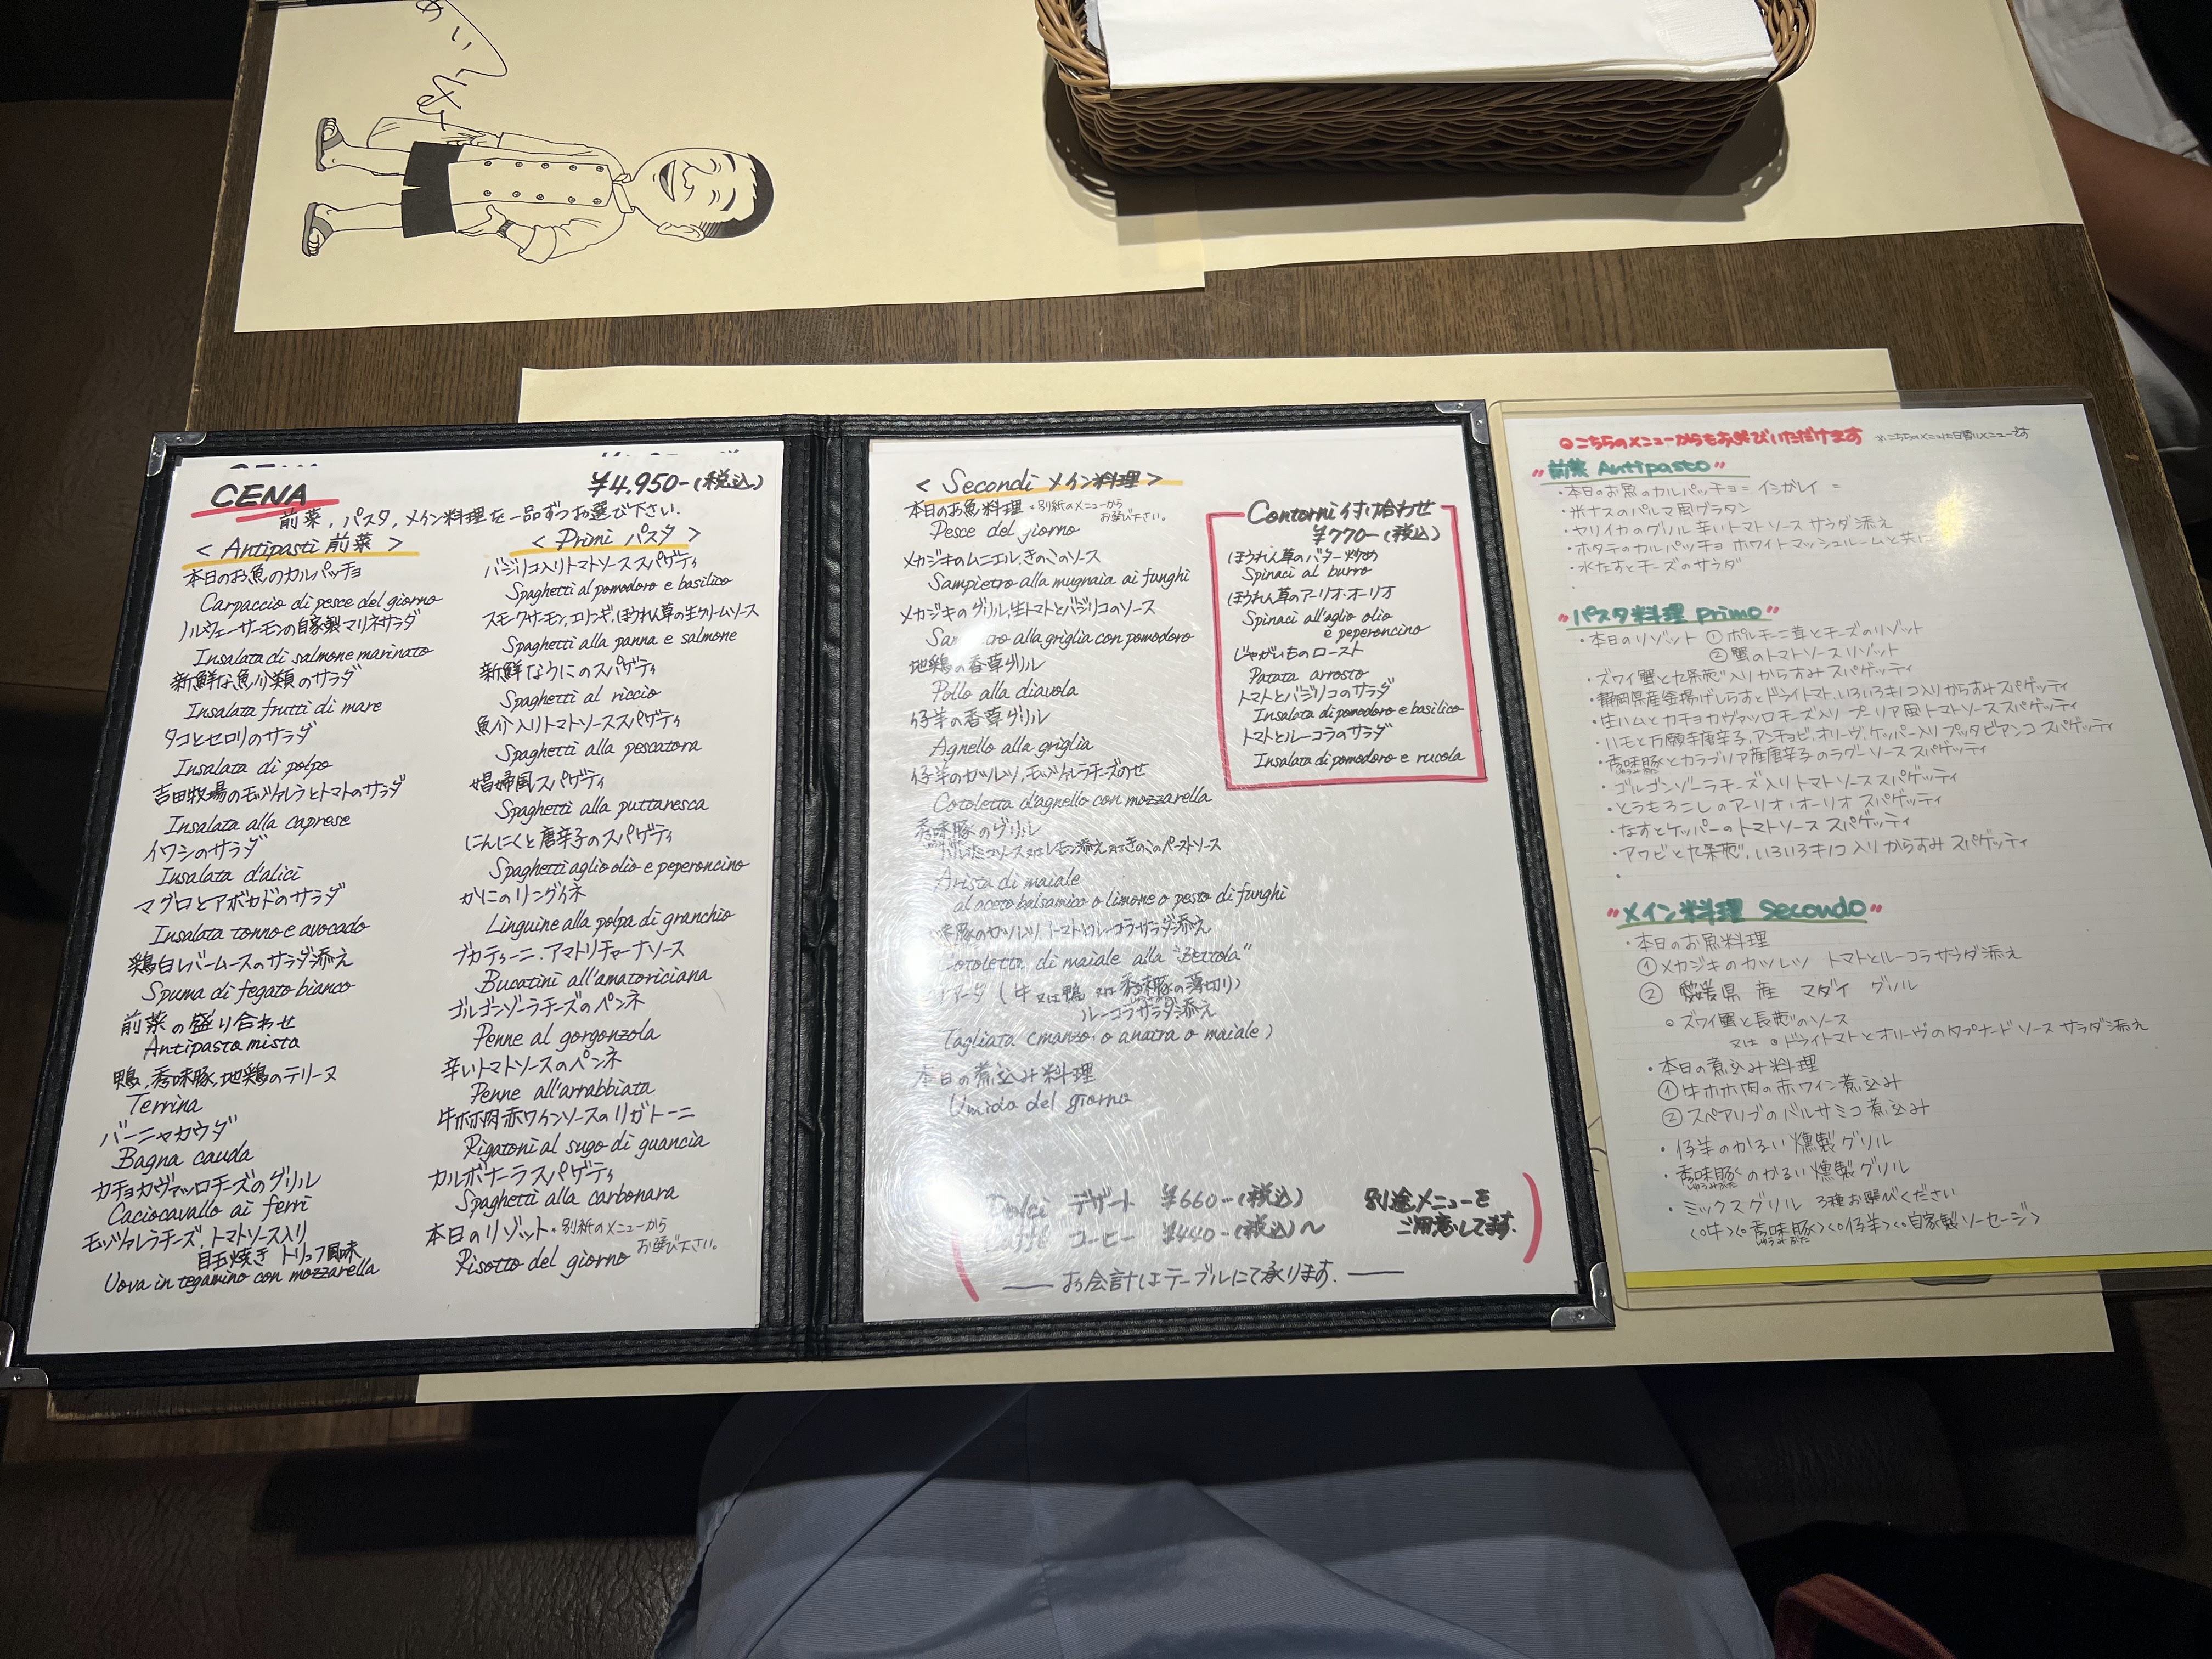 CENA
¥4.950-(税込)
前菜、パスタ、メイン料理を一品ずつお選び下さい.
< Antipasti 前菜 >
本日のお魚のカルパッチョ
Carpaccio di pesce del giorno
ノルウェーサーモンの自家製マリネサラダ
Insalata di salmone marinato
新鮮な魚介類のサラダ
Insalata frutti di mare
タコとセロリのサラダ
Insalata di polpo
吉田牧場のモッツァレラとトマトのサラダ
Insalata alla caprese
イワシのサラダ
Insalata d'alici
マグロとアボカドのサラダ
Insalata tonno e avocado
鶏白レバームースのサラダ添え
Spuma di fegato bianco
前菜の盛り合わせ
Antipasta mista
鴨、香味豚、地鶏のテリーヌ
Terrina
バーニャカウダ
Bagna cauda
カチョカヴァッロチーズのグリル
Caciocavallo ai ferri
モッツァレラチーズ、トマトソース入り
目玉焼き トリュフ風味
Uova in tegamino con mozzarella
< Primi パスタ >
バジリコ入りトマトソーススパゲティ
Spaghetti al pomodoro e basilico
スモークサーモン、エリンギ、ほうれん草の生クリームソース
Spaghetti alla panna e salmone
新鮮なうにのスパゲティ
Spaghetti al riccio
魚介入りトマトソーススパゲティ
Spaghetti alla pescatora
娼婦風スパゲティ
Spaghetti alla puttaresca
にんにくと唐辛子のスパゲティ
Spaghetti aglio olio e peperoncino
かにのリングイネ
Linguine alla polpa di granchio
ブカティーニ、アマトリチャーナソース
Bucatini all'amatoriciana
ゴルゴンゾーラチーズのペンネ
Penne al gorgonzola
辛いトマトソースのペンネ
Penne all'arrabbiata
牛ホホ肉赤ワインソースのリガトーニ
Rigatoni al sugo di guancia
カルボナーラスパゲティ
Spaghetti alla carbonara
本日のリゾット・別紙のメニューから
お選び下さい。
Risotto del giorno
< Secondi メイン料理 >
本日のお魚料理・別紙のメニューから
お選び下さい。
Pesce del giorno
メカジキのムニエル、きのこのソース
Sampietro alla mugnaia ai funghi
メカジキのグリル、生トマトとバジリコのソース
alla griglia con pomodoro
地鶏の香草グリル
Pollo alla diavola
仔羊の香草グリル
Agnello alla griglia
仔羊のカツレツ、モッツァレラチーズのせ
Cotoletta d'agnello con mozzarella
香味豚のグリル
バルサミコソース又はレモン添え又はきのこのペーストソース
Arista di maiale
al aceto balsamico o limone o pesto di funghi
味豚のカツレツ、トマトとルーコラサラダ添え
Cotoletta di maiale alla "Bettola"
(牛 又は鴨 又は香味豚の薄切り)
ルーコラサラダ添え
Tagliata (manzo, o anatra o maiale)
本日の煮込み料理
Umido del giorno
Contorni 付け合わせ
¥770-(税込)
ほうれん草のバター炒め
Spinaci al burro
ほうれん草のアーリオ・オーリオ
Spinaci all'aglio olio
e peperoncino
じゃがいものロースト
Patata arrosto
トマトとバジリコのサラダ
Insalata di pomodoro e basilico
トマトとルーコラのサラダ
Insalata di pomodoro e rucola
Dolci デザート ¥660-(税込)
Caffé コーヒー ¥440-(税込)〜
別途メニューを
ご用意してます.
お会計はテーブルにて承ります.
○こちらのメニューからもお選びいただけます ※こちらのメニューは日替りメニューです
"前菜 Antipasto"
・本日のお魚のカルパッチョ= イシガレイ =
・米ナスのパルマ風グラタン
・ヤリイカのグリル 辛いトマトソース サラダ添え
・ホタテのカルパッチョ ホワイトマッシュルームと共に
・水なすとチーズのサラダ
"パスタ料理 primo"
・本日のリゾット ①ポルチーニ茸とチーズのリゾット
②蟹のトマトソースリゾット
・ズワイ蟹と九条葱入りからすみスパゲッティ
・静岡県産釜揚げしらすとドライトマト、いろいろキノコ入りからすみスパゲッティ
・生ハムとカチョカヴァッロチーズ入り プーリア風トマトソーススパゲッティ
・ハモと万願寺唐辛子、アンチョビ、オリーヴ、ケッパー入りプッタビアンコ スパゲッティ
・香味豚とカラブリア産唐辛子のラグーソーススパゲッティ
・ゴルゴンゾーラチーズ入りトマトソース スパゲッティ
・とうもろこしのアーリオ・オーリオ スパゲッティ
・なすとケッパーのトマトソース スパゲッティ
・アワビと九条葱、いろいろキノコ入りからすみ スパゲッティ
"メイン料理 Secondo"
・本日のお魚料理
①メカジキのカツレツ トマトとルーコラサラダ添え
② 愛媛県産 マダイ グリル
○ズワイ蟹と長葱のソース
又は ○ドライトマトとオリーヴのタプナードソース サラダ添え
・本日の煮込み料理
①牛ホホ肉の赤ワイン煮込み
②スペアリブのバルサミコ煮込み
・仔羊のかるい燻製グリル
・香味豚のかるい燻製グリル
・ミックスグリル 3種お選びください
<○牛><○香味豚><○仔羊><○自家製ソーセージ>